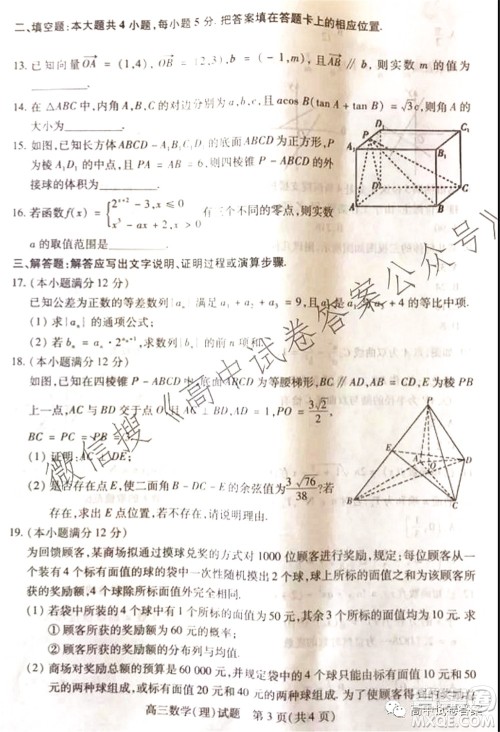 二、填空题:本大题共4小题,每小题5分.把答案填在答题卡上的相应位置.
13. 已知向量OA=(1,4),OB=(2,3),b=(-1,m),且AB∥b,则实数m的值为
________.
14. 在△ABC中,内角A,B,C的对边分别为a,b,c,且acos B(tan A+tan B)=√3c,则角A的
大小为________.
15. 如图,已知长方体ABCD-A₁B₁C₁D₁的底面ABCD为正方形,P
为棱A₁D₁的中点,且PA=AB=6,则四棱锥P-ABCD的外
接球的体积为________.
16. 若函数f(x)={2ˣ⁺²-3,x≤0
x³-ax+2,x>0 有三个不同的零点,则实数
a的取值范围是________.
三、解答题:解答应写出文字说明、证明过程或演算步骤.
17. (本小题满分12分)
已知公差为正数的等差数列{aₙ}满足a₁+a₂+a₃=9,且
+4的等比中项.
(1) 求{aₙ}的通项公式;
(2) 若bₙ=aₙ·
,求数列{bₙ}的前n项和
18. (本小题满分12分)
如图,已知在四棱锥P-ABCD中,底面ABCD为等腰梯形,BC∥AD,AB=CD,E为棱PB
上一点,AC与BD交于点O,且AC⊥BD,AD=1,PO=3√2/2,
BC=PC=PB
(1) 证明:AC⊥DE;
(2) 是否存在点E,使二面角B-DC-E的余弦值为3√76/38?若
存在,求出E点位置,若不存在,请说明理由.
19. (本小题满分12分)
为回馈顾客,某商场拟通过摸球兑奖的方式对1000位顾客进行奖励,规定:每位顾客从一
个装有4个标有面值的球的袋中一次性随机摸出2个球,球上所标的面值之和为该顾客所
获的奖励额,4个球除所标面值外完全相同.
(1) 若袋中所装的4个球中有1个所标的面值为50元,其余3个所标的面值均为10元.求
①顾客所获的奖励额为60元的概率;
②顾客所获的奖励额的分布列与均值.
(2) 商场对奖励总额的预算是60 000元,并规定袋中的4个球只能由标有面值10元和50
元的两种球组成,或标有面值20元和40元的两种球组成.为了使顾客
高三数学(理)试题 第3页(共4页)
P D₁ C₁ A₁ B₁ D C A B
P E A O D B C
微信搜《高中试卷答案公众号》
高中试卷答案